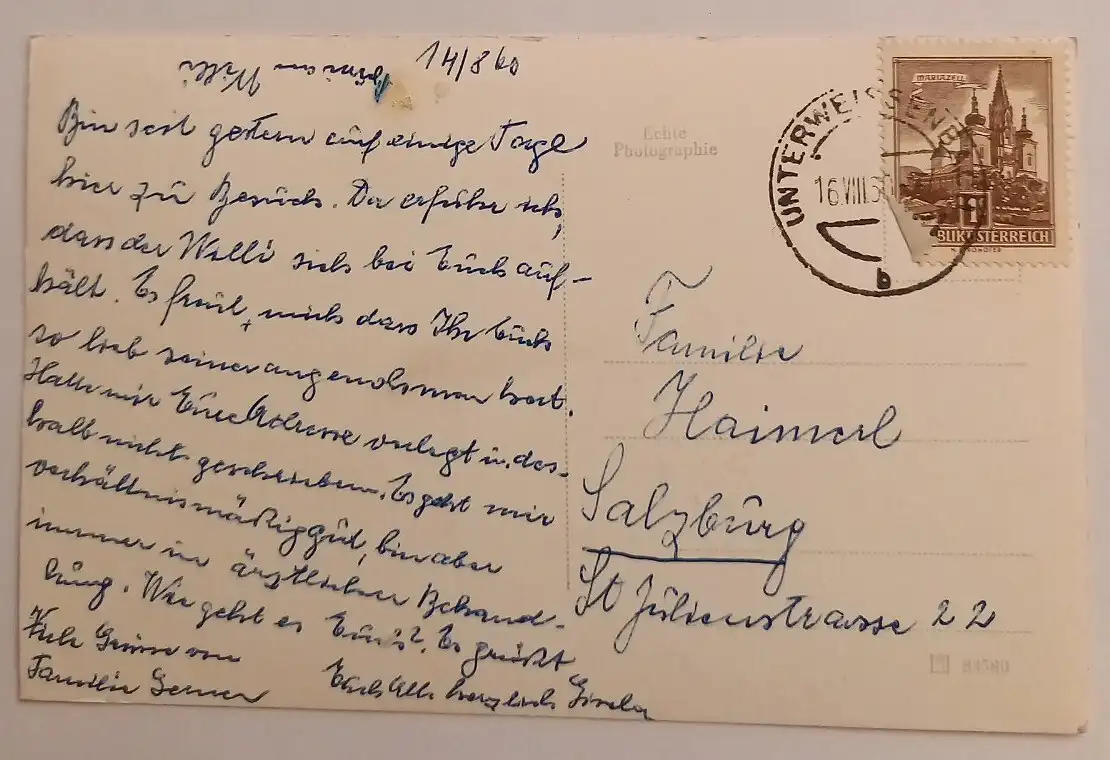 14/8 60
Willi
Bin seit gestern auf einige Tage
hier zu Besuch. Da erfuhr ich,
dass der Willi sich bei Euch auf-
hält. Es freut mich dass Ihr Euch
so lieb seiner angenohmen habt.
Hatte mir Eure Adresse verlegt u. des-
halb nicht geschrieben. Es geht mir
verhältnismäßig gut, bin aber
immer in ärztlicher Behand-
lung. Wie geht es Euch? Es grüßt
Euch Alle herzlich Gisela
Viele Grüsse von
Familie
Echte
Photographie
MARIAZELL
REPUBLIK ÖSTERREICH
UNTERWEISSENBACH
16.VIII.60
b
Familie
Haimerl
Salzburg
St Julienstrasse 22
83580